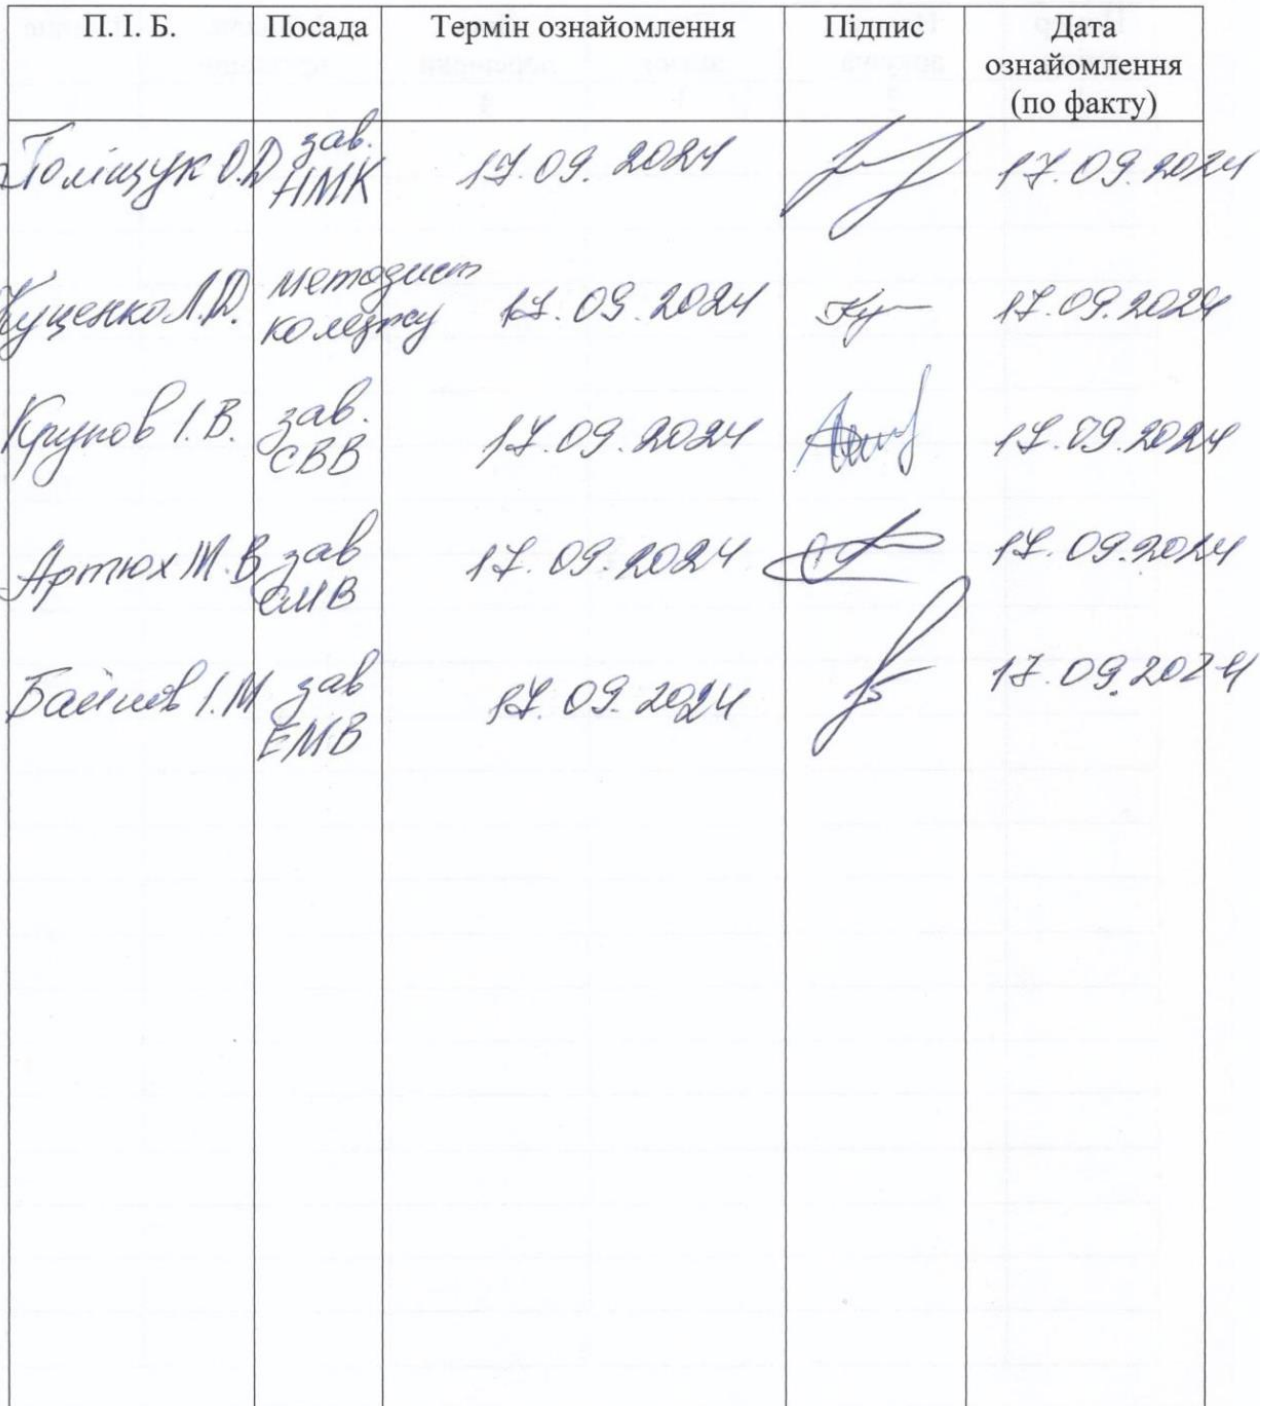 П. І. Б. Посада Термін ознайомлення Підпис Дата
ознайомлення
(по факту)
Поліщук О.Д зав.
НМК 17.09.2024 17.09.2024
Куценко Л.Д. методист
коледжу 17.09.2024 17.09.2024
Крупов І.В. зав.
СВВ 17.09.2024 17.09.2024
Артюх М.В зав
СМВ 17.09.2024 17.09.2024
І.М зав
ЕМВ 17.09.2024 17.09.2024